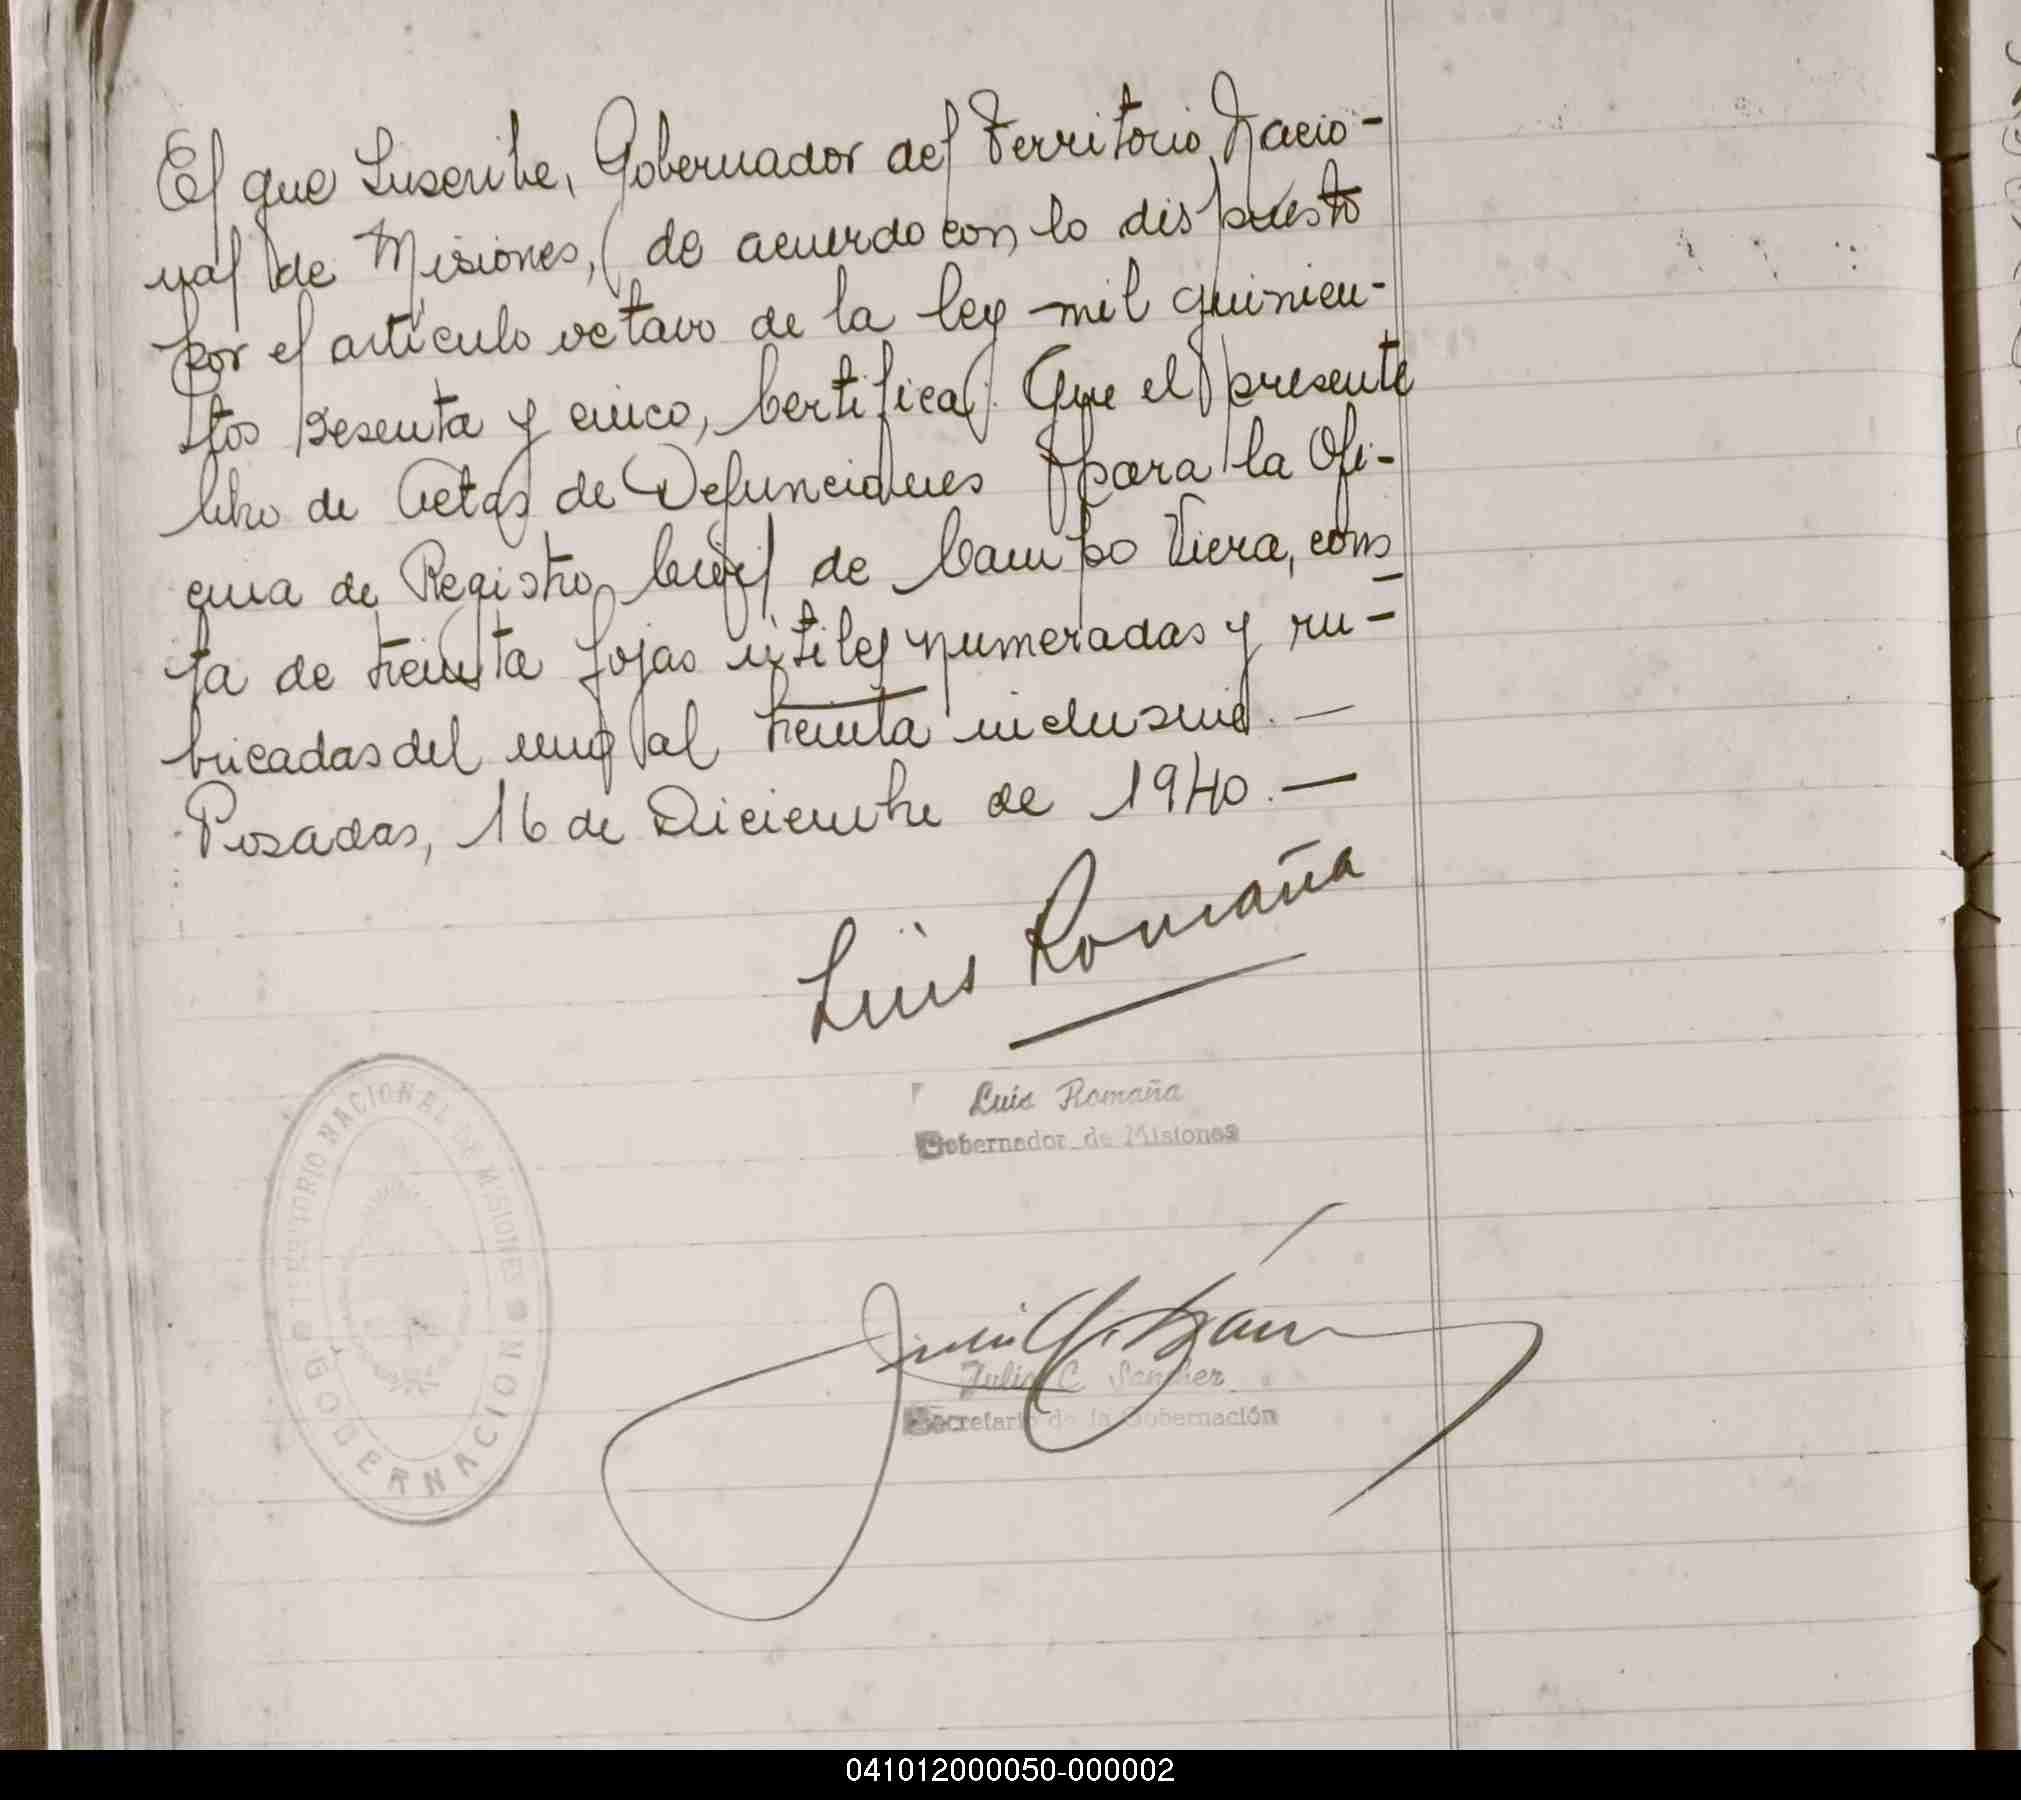 El que Suscribe, Gobernador del Territorio Nacio-
nal de Misiones, de acuerdo con lo dispuesto
por el artículo octavo de la ley mil quinien-
tos sesenta y cinco, Certifica: Que el presente
libro de Actas de Defunciones para la Ofi-
cina de Registro Civil de Campo Viera, cons
ta de treinta fojas útiles numeradas y ru-
bricadas del uno al treinta inclusive. —
Posadas, 16 de Diciembre de 1940. —
Luis Romaña
Luis Romaña
Gobernador de Misiones
TERRITORIO NACIONAL DE MISIONES
GOBERNACION
Julio C. Sánchez
Julio C. Sanchez
Secretario de la Gobernación
041012000050-000002